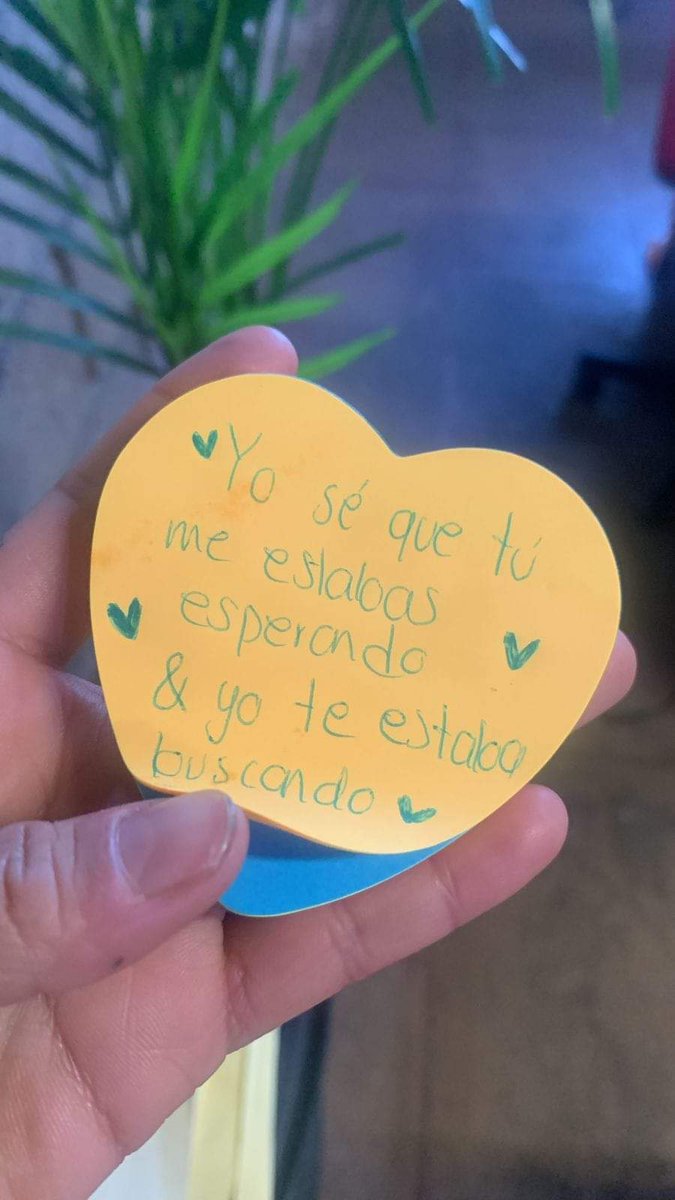 Yo sé que tú
me estabas
esperando
& yo te estaba
buscando